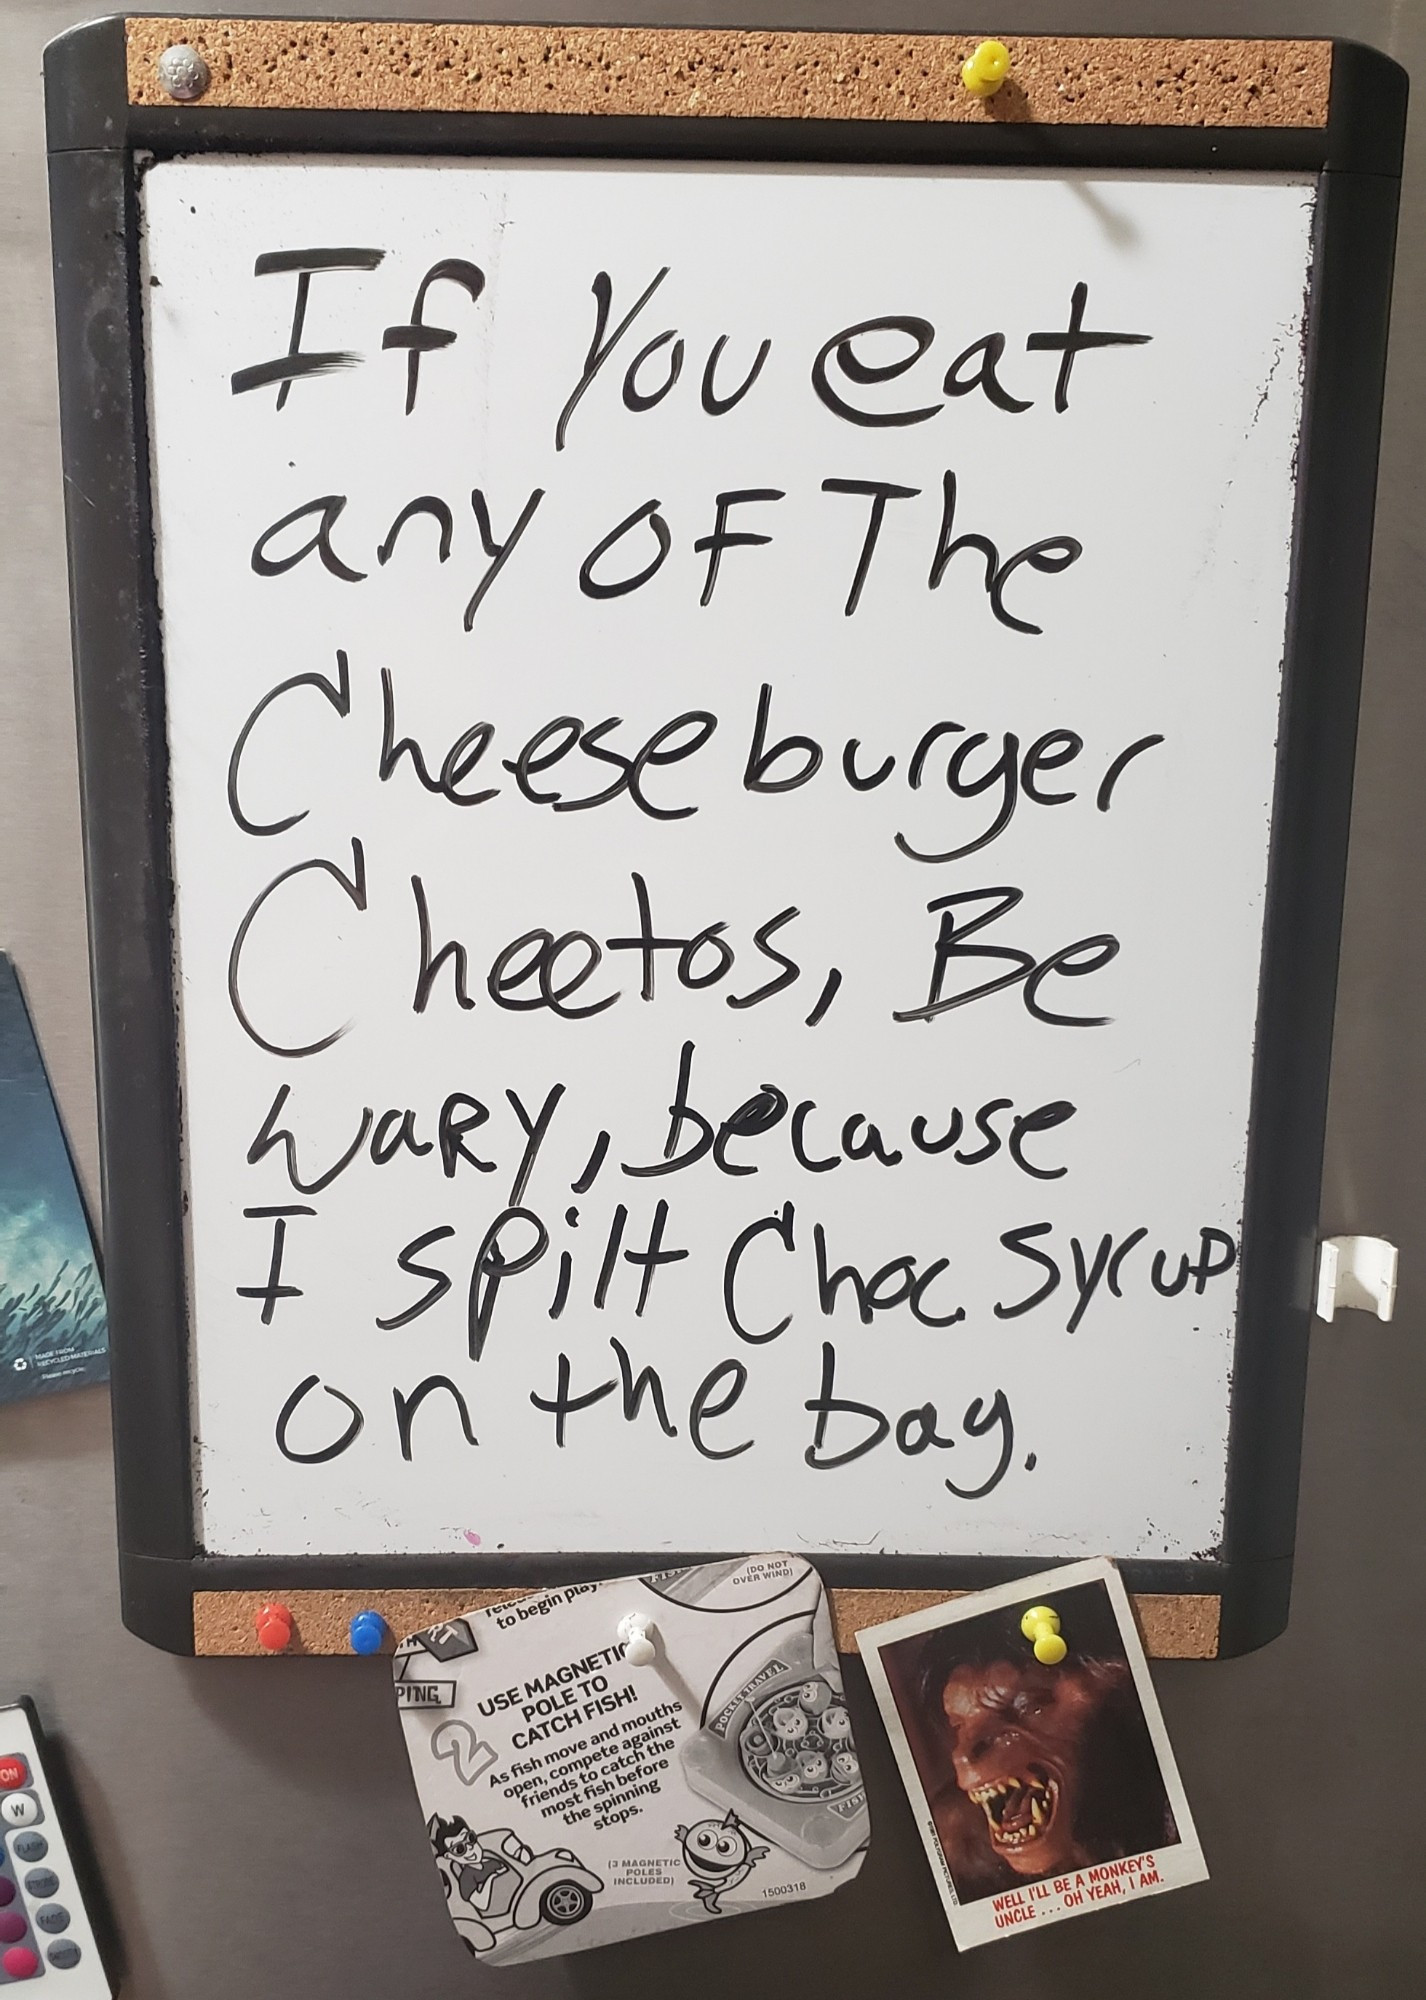 If You eat
any oF The
Cheeseburger
Cheetos, Be
waRy, because
I spilt Choc. Syrup
on the bag.
MADE FROM
RECYCLED MATERIALS
to begin play.
(DO NOT
OVER WIND)
PING
2
USE MAGNETIC
POLE TO
CATCH FISH!
As fish move and mouths
open, compete against
friends to catch the
most fish before
the spinning
stops.
(3 MAGNETIC
POLES
INCLUDED)
POCKET TRAVEL
FISH
1500318
WELL I'LL BE A MONKEY'S
UNCLE . . . OH YEAH, I AM.
ON
W
FLASH
STROBE
FADE
SMOOTH